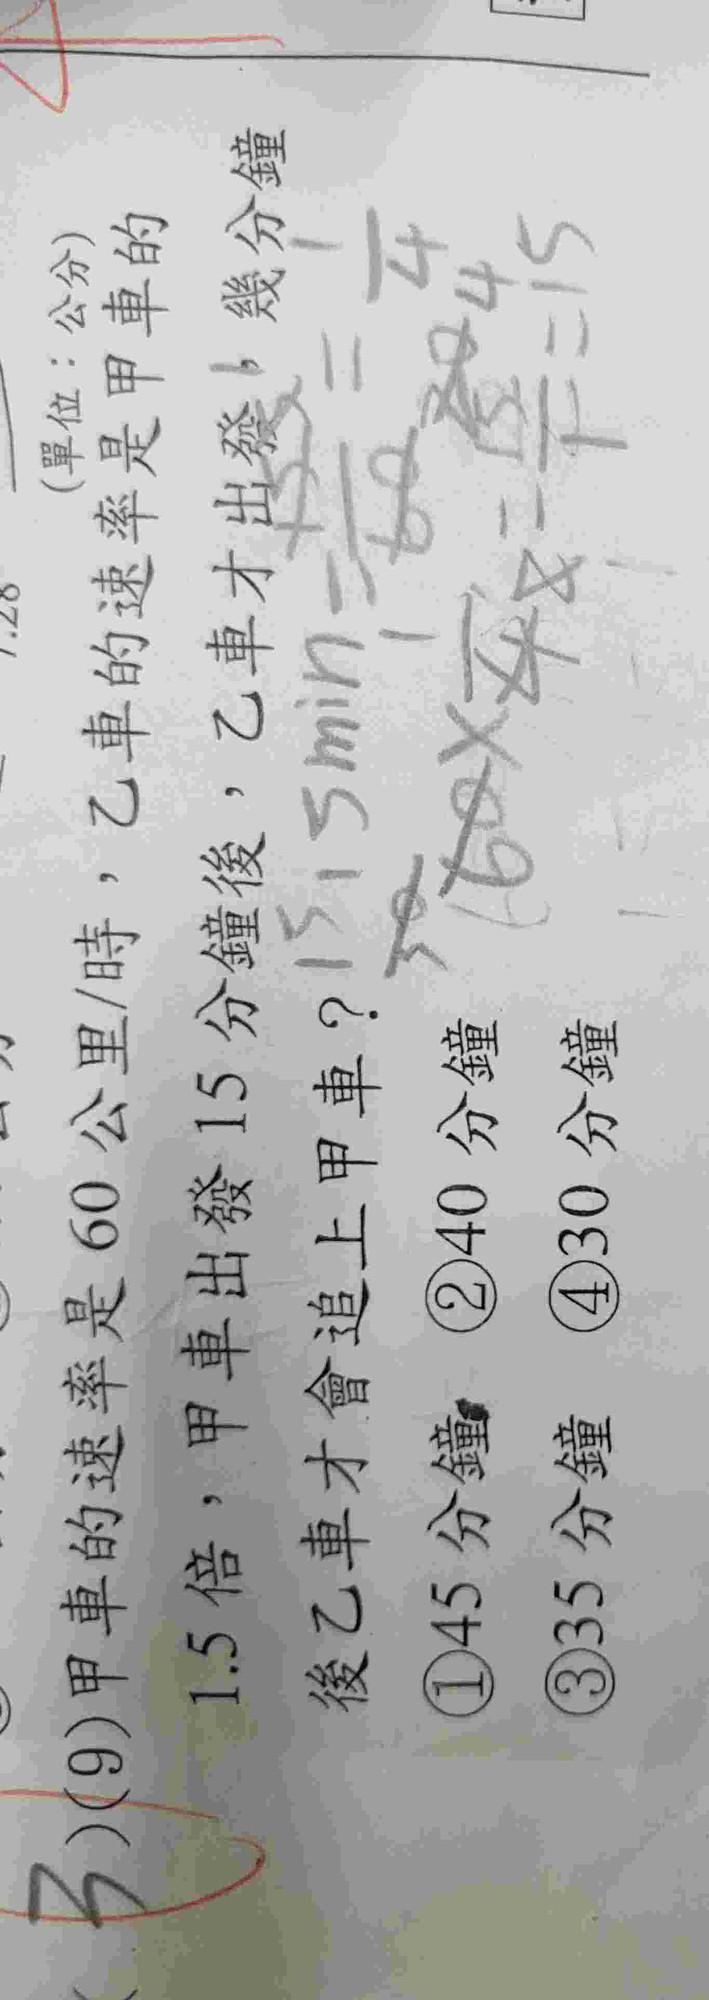 (單位：公分)
3)(9)甲車的速率是 60 公里/時，乙車的速率是甲車的
1.5 倍，甲車出發 15 分鐘後，乙車才出發，幾分鐘
後乙車才會追上甲車？
①45 分鐘 ②40 分鐘
③35 分鐘 ④30 分鐘
15 min = 15/60 = 1/4
60 × 1/4 = 15/1 = 15